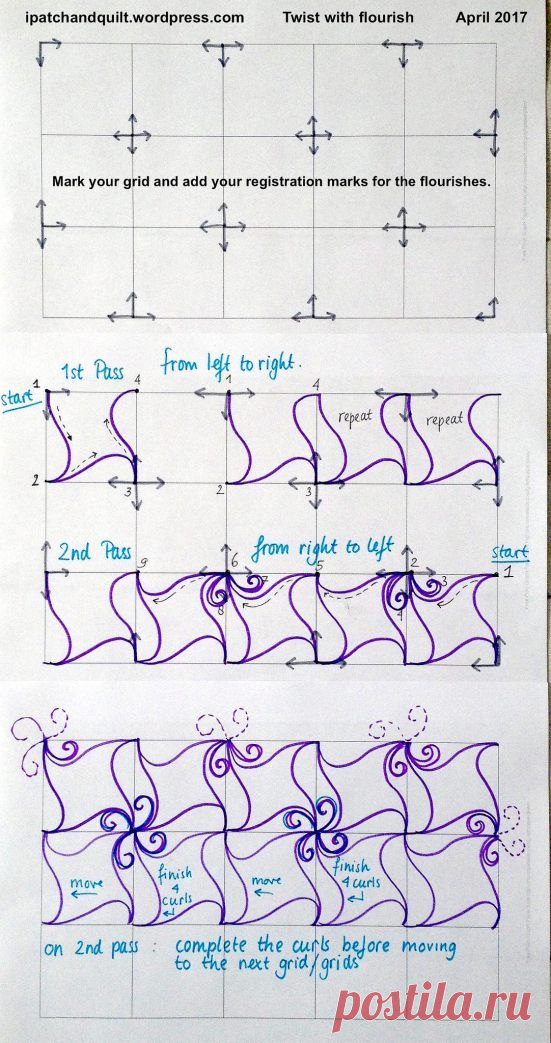 ipatchandquilt.wordpress.com Twist with flourish April 2017
Mark your grid and add your registration marks for the flourishes.
1st Pass from left to right.
1 4 1 4
start
repeat repeat
2 3 2 3
2nd Pass from right to left start
9 6 5 2 1
7 3
8 4
move finish 4 curls move finish 4 curls
on 2nd pass : complete the curls before moving
to the next grid/grids
postila.ru